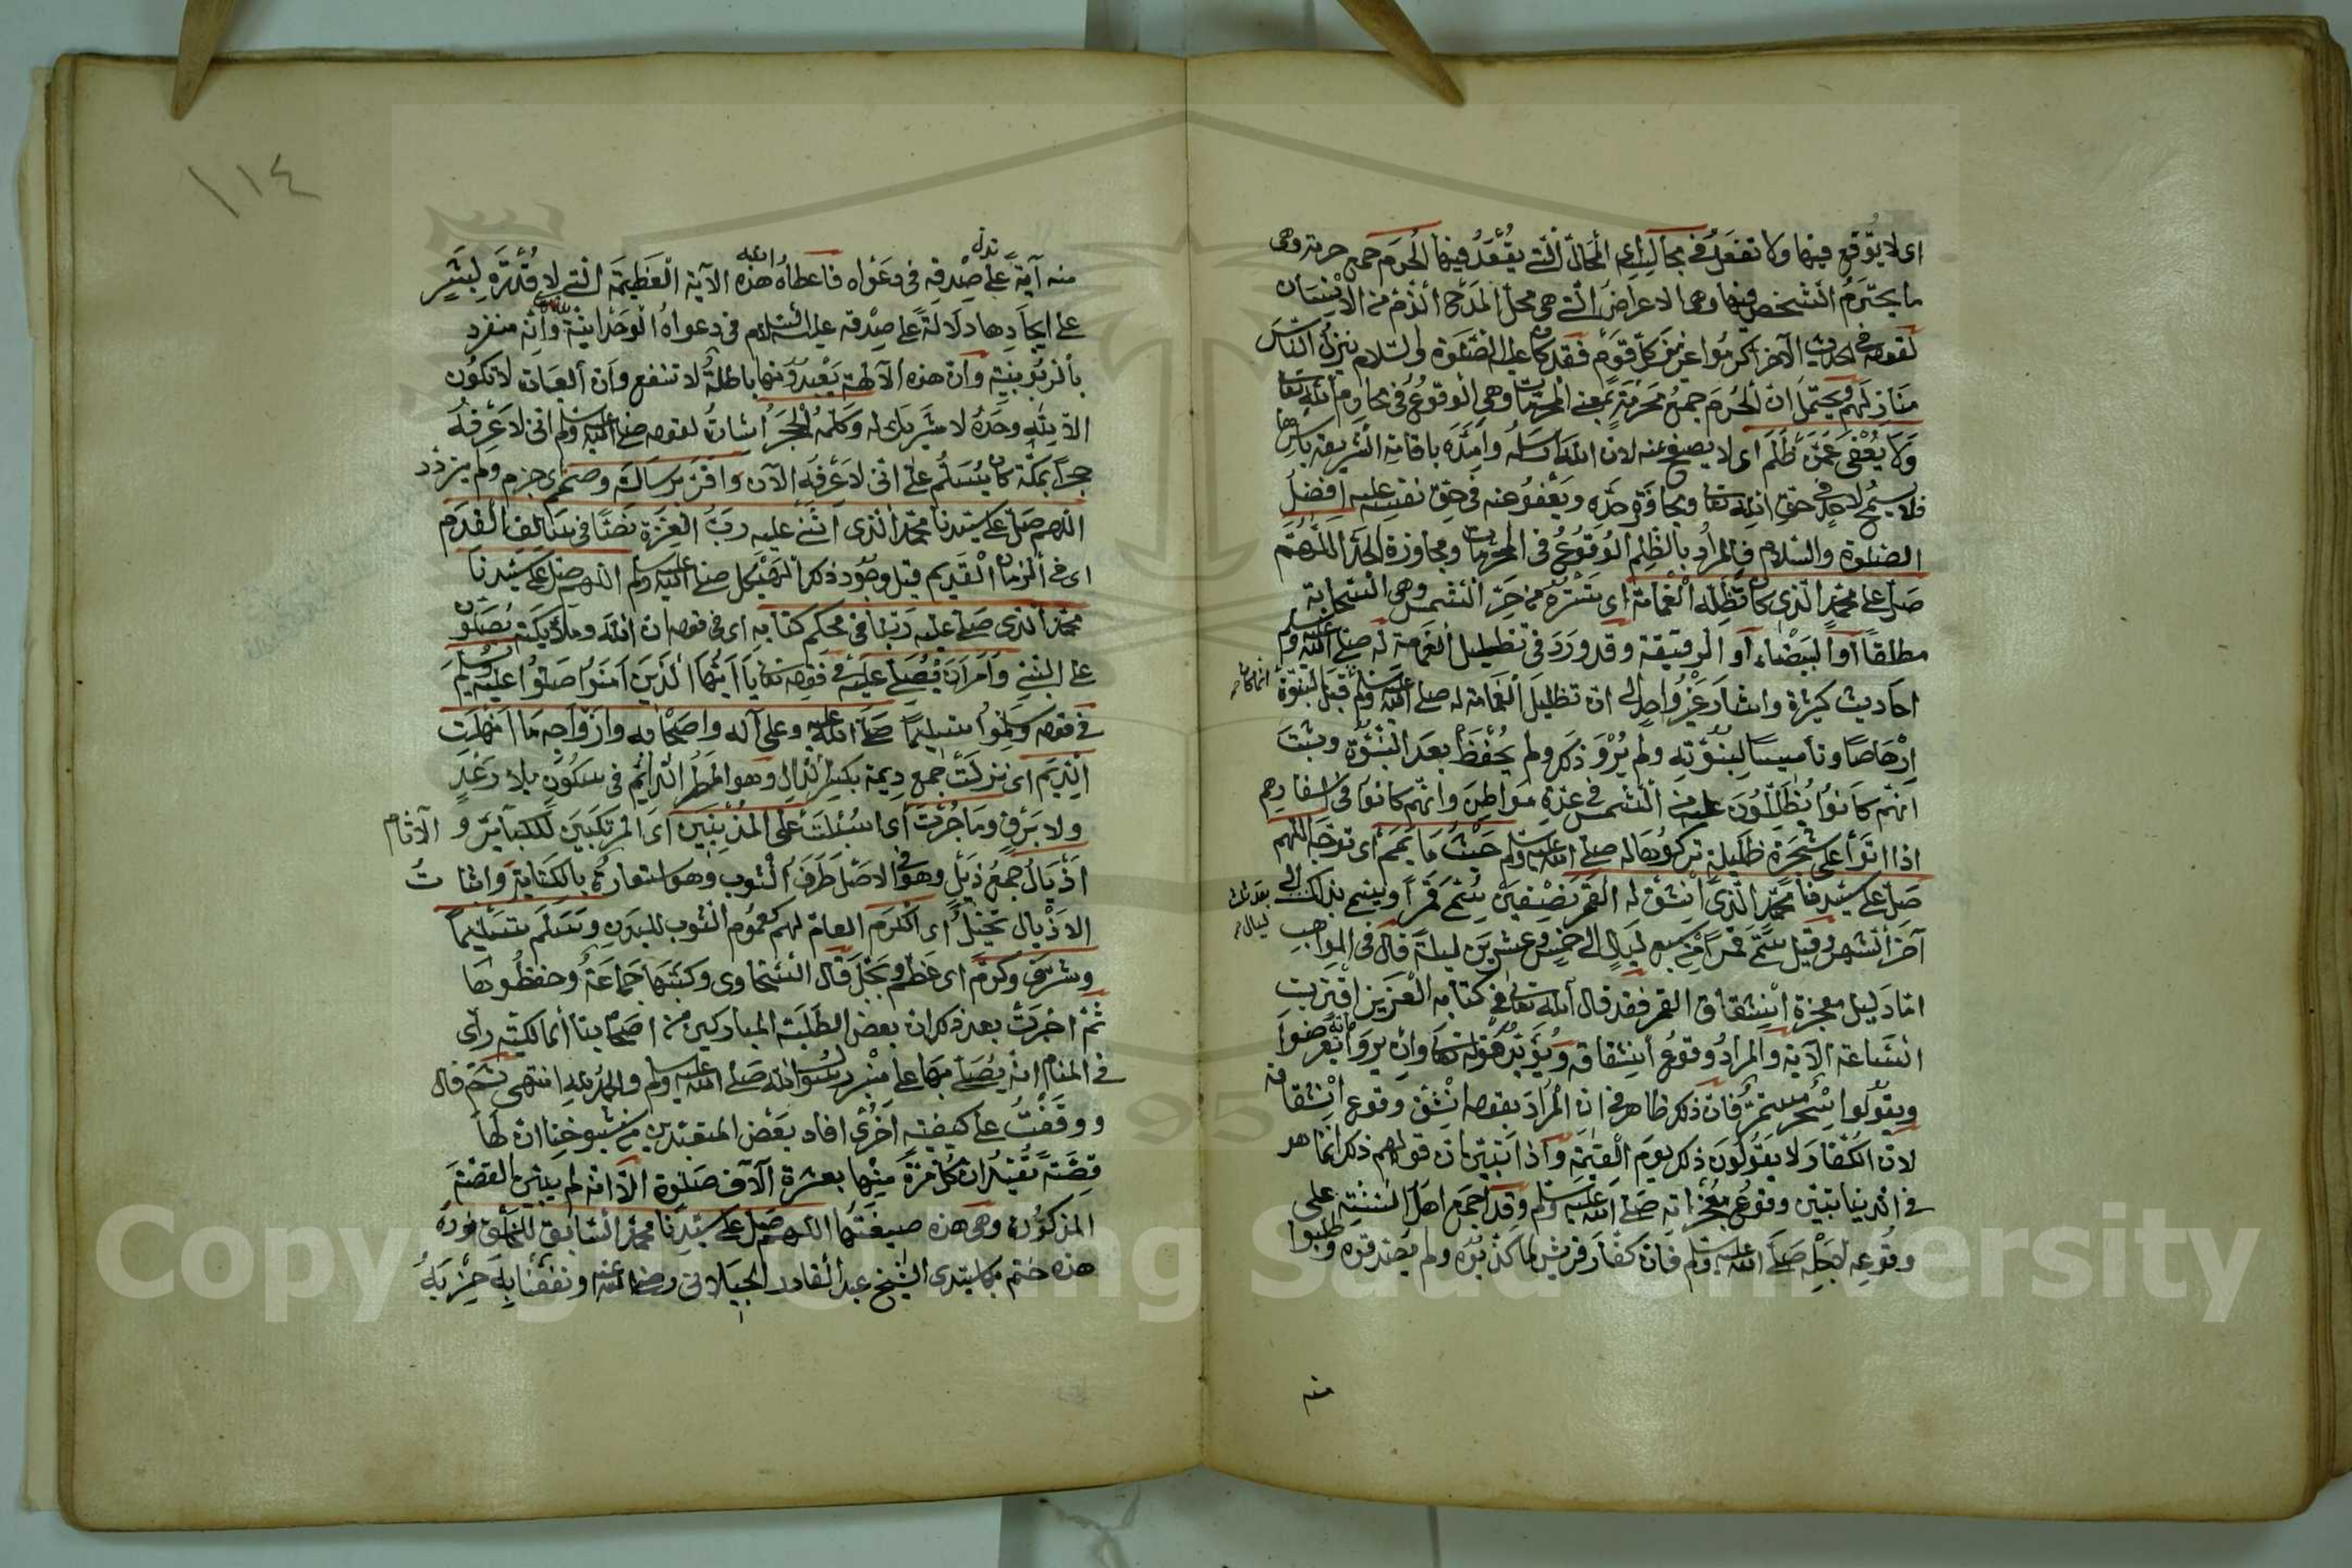 اى لا يوقع فيها ولا تفعل فى مجالسه اى المحال التى يقعد فيها الحرم جمع حرمة وهى
ما يحترم الشخص فيها وهى الاعراض التى هى محل المدح الذم من الانسان
لقوله فى الحديث الآخر اكرموا عزيز كل قوم فقد كان عليه الصلوة والسلام ينزل الناس
منازلهم ويحتمل ان الحرم جمع محرمة بمعنى المحرمات وهى الوقوع فى محارم الله تعالى
ولا يغضى عمن ظلم اى لا يصفح عنه لان الله ارسله وامره باقامة الشريعة باسرها
فلا يسمح لاحد فى حق الله تعالى ومجاوزة حده ويعفو عنه فى حق نفسه عليه افضل
الصلوة والسلام فالمراد بالظلم الوقوع فى المحرمات ومجاوزة الحد اللهم
صل على محمد الذى كان تظله الغمامة اى تستره من حر الشمس وهى السحابة
مطلقا او البيضاء او الرقيقة وقد ورد فى تظليل الغمامة له صلى الله عليه وسلم
احاديث كثيرة واشار غير واحد الى ان تظليل الغمامة له صلى الله عليه وسلم قبل النبوة
انما كان
ارهاصا وتأسيسا لنبوته ولم يرو ذكر ولم يحفظ بعد النبوة وثبت
انهم كانوا يظللون عليه من الشمس فى عدة مواطن وانهم كانوا فى اسفارهم
اذا اتوا على شجرة ظليلة تركوها له صلى الله عليه وسلم حيث ما يمم اى توجه اللهم
صل على سيدنا محمد الذى انشق له القمر نصفين يتم قمرا وينتهى بذلك الى
بعد ثلاث ليال
آخر الشهر وقيل يتم قمرا من سبع ليال الى خمس وعشرين ليلة قال فى المواهب
اما دليل معجزة انشقاق القمر فقد قال الله تعالى فى كتابه العزيز اقتربت
الساعة الآية والمراد وقوع انشقاقه ويؤيده قوله تعالى وان يروا آية يعرضوا
ويقولوا سحر مستمر فان ذلك ظاهر فى ان المراد بقوله انشق وقوع انشقاقه
لان الكفار لا يقولون ذلك يوم القيمة واذا تبين ان قولهم ذلك انما هو
فى الدنيا تبين وقوع معجزاته صلى الله عليه وسلم وقد اجمع اهل السنة على
وقوعه لاجله صلى الله عليه وسلم فان كفار قريش لما كذبوه ولم يصدقوه وطلبوا
منه
١١٤
تدل الله
منه آية على صدقه فى دعواه فاعطاه هذه الآية العظيمة التى لا قدرة لبشر
على ايجادها دلالة على صدقه عليه السلام فى دعواه الوحدانية لله تعالى وانه منفرد
بالربوبية وان هذه الآلهة يعبدونها باطلة لا تنفع وان العبادة لا تكون
الا لله وحده لا شريك له وكلمه الحجر اشارة لقوله صلى الله عليه وسلم انى لاعرف
حجرا بمكة كان يسلم على انى لاعرفه الآن واقر برسالته وصمم اى جزم ولم يتردد
اللهم صل على سيدنا محمد الذى اثنى عليه رب العزة نصا فى سالف القدم
اى فى الزمان القديم قبل وجود ذكر الهيكل صلى الله عليه وسلم اللهم صل على سيدنا
محمد الذى صلى عليه ربنا فى محكم كتابه اى فى قوله ان الله وملائكته يصلون
على النبى وامر ان يصلى عليه فى قوله تعالى يا ايها الذين آمنوا صلوا عليه ويسلم
فى قوله وسلموا تسليما صلى الله عليه وعلى آله واصحابه وازواجه ما انهلت
الديم اى نزلت جمع ديمة بكسر الدال وهو المطر الدائم فى سكون بلا رعد
ولا برق وما جرت اى اسبلت على المذنبين اى المرتكبين للكبائر و الآثام
اذيال جمع ذيل وهو فى الاصل طرف الثوب وهو استعارة بالكناية واثبات
الاذيال تخييل اى الكرم العام لهم كعموم الثوب للبدن وسلم تسليما
وشرف وكرم اى عظم وبجل قال السخاوى وكتبها جماعة وحفظوها
ثم اخبرت بعد ذلك ان بعض الطلبة المباركين من اصحابنا المالكية راى
فى المنام انه يصلى بها على منبر رسول الله صلى الله عليه وسلم والحمد لله انتهى ثم قال
ووقفت على كيفية اخرى افاد بعض المعتقدين من شيوخنا ان لها
قصة تفيد ان كل مرة منها بعشرة آلاف صلوة الا انه لم يبين القصة
المذكورة وهى هذه صيغتها اللهم صل على سيدنا محمد السابق للخلق نوره
هذه ختم بها سيدى الشيخ عبد القادر الجيلانى رضى الله عنه ونفعنا به حزبه